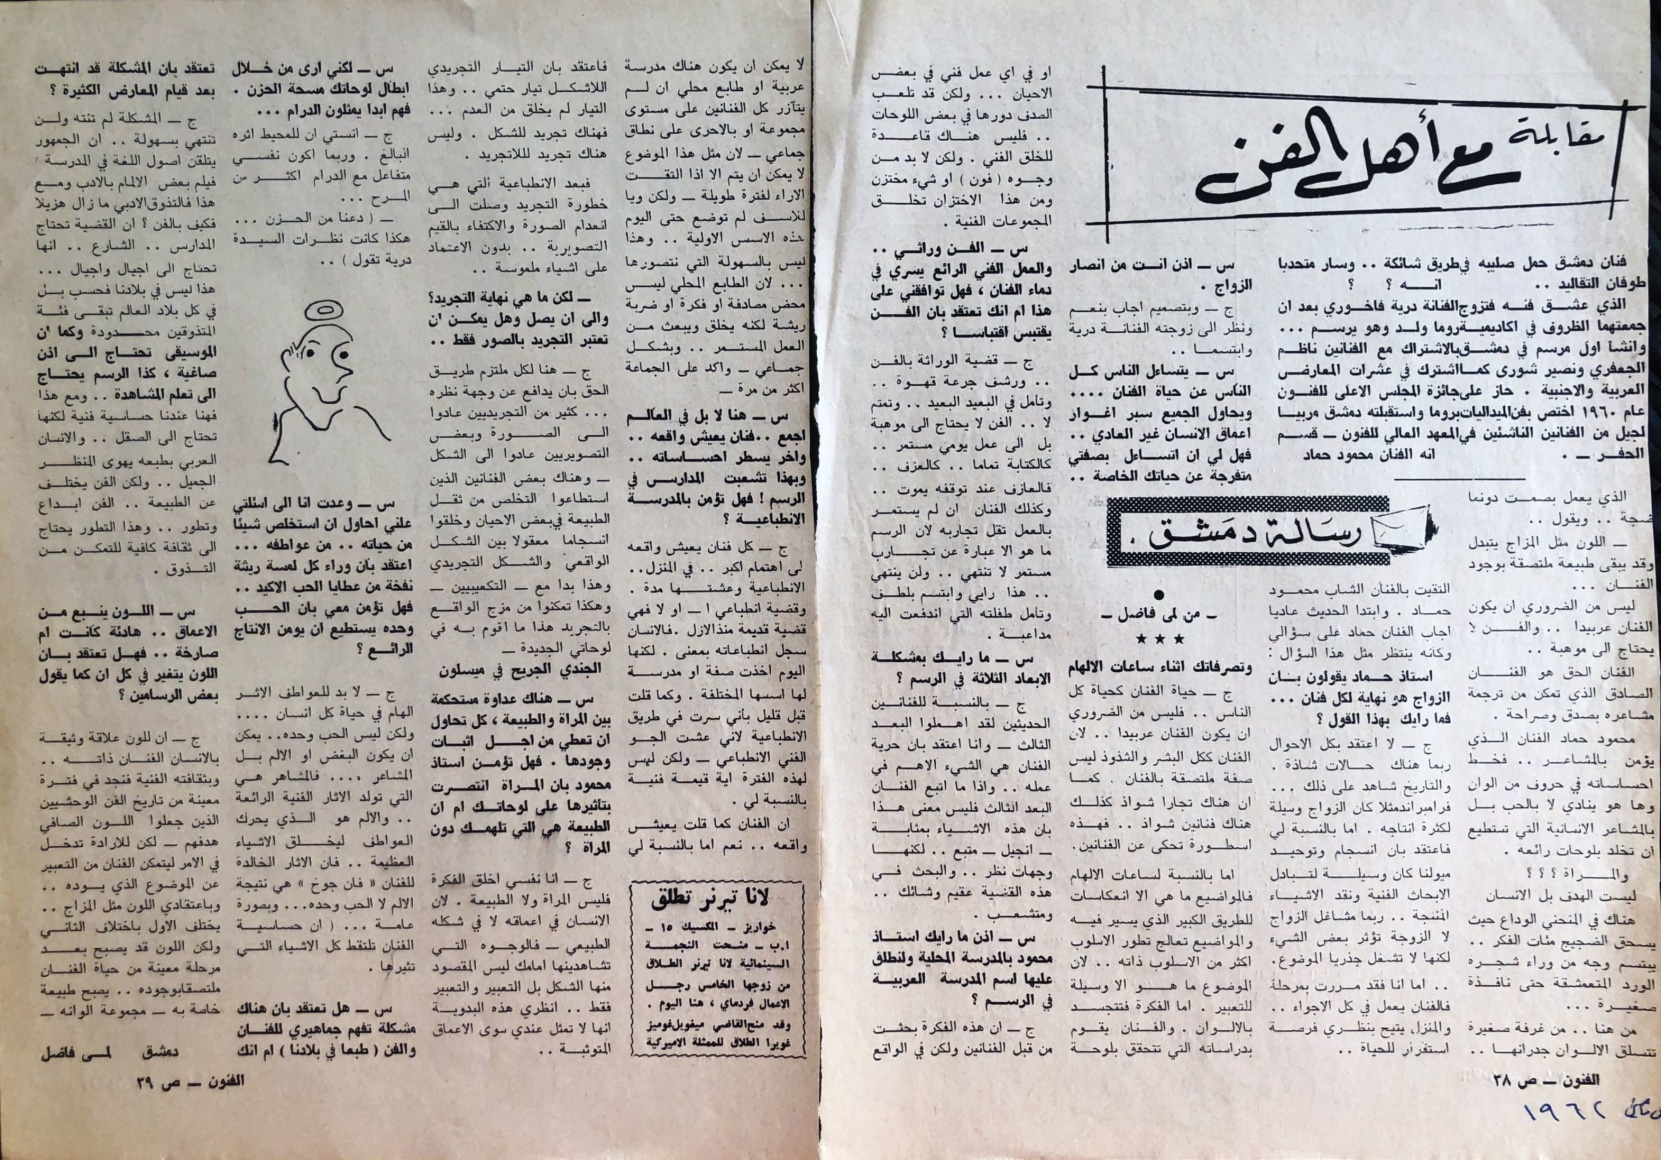 مقابلة مع أهل الفن
فنان دمشق حمل صليبه في طريق شائكة .. وسار متحديا
طوفان التقاليد .. انــه ؟ ؟
الذي عشــق فنــه فتزوج الفنانة درية فاخوري بعد ان
جمعتهما الظروف في اكاديمية روما ولــد وهو يرسم ...
وانشا اول مرسم في دمشق بالاشتراك مع الفنانين ناظم
الجعفري ونصير شورى كمــا اشترك في عشرات المعارض
العربية والاجنبية . حاز على جائزة المجلس الاعلى للفنــون
عام ١٩٦٠ اختص بفن الميداليات بروما واستقبلته دمشق مربيــا
لجيل من الفنانين الناشئين في المعهد العالي للفنون ــ قســم
الحفـر ــ . انه الفنان محمود حماد
الذي يعمل بصمــت دونمــا
ضجة .. ويقول ..
ــ اللون مثل المزاج يتبدل
وقد يبقى طبيعة ملتصقة بوجود
الفنــان ...
ليس من الضروري ان يكون
الفنان عربيدا .. والفــن لا
يحتاج الى موهبة ..
الفنان الحق هو الفنــان
الصادق الذي تمكن من ترجمة
مشاعره بصدق وصراحة .
محمود حماد الفنان الــذي
يؤمن بالمشاعــر .. فخــط
احساساته في حروف من الوان
وها هو ينادي لا بالحب بــل
بالمشاعر الانسانية التي تستطيع
ان تخلد بلوحات رائعه .
والمــراة ؟ ؟ ؟
ليست الهدف بل الانسان
هناك في المنحنى الوداع حيث
يسحق الضجيج مئات الفكر ..
يبتسم وجه من وراء شجــرة
الورد المتعمشقة حتى نافــذة
صغيرة ...
من هنا .. من غرفة صغيرة
تتسلق الالــوان جدرانهــا ..
رسالة دمشق .
التقيت بالفنان الشاب محمــود
حمــاد . وابتدا الحديث عاديا
اجاب الفنان حماد على سؤالي
وكانه ينتظر مثل هذا السؤال :
استاذ حمــاد يقولون بــان
الزواج هو نهاية لكل فنان ...
فما رايك بهذا القول ؟
ج ــ لا اعتقد بكل الاحوال
ربما هناك حــالات شــاذة .
والتاريخ شاهد على ذلك ...
فرامبراندمثلا كان الزواج وسيلة
لكثرة انتاجه . اما بالنسبة لي
فاعتقد بان انسجام وتوحيــد
ميولنا كان وسيلــة لتبــادل
الابحاث الفنية ونقد الاشيــاء
المنتجة .. ربما مشاغل الزواج
لا الزوجة تؤثر بعض الشيء
لكنها لا تشغل جذريا الموضوع.
.. اما انا فقد مررت بمرحلة
فالفنان يعمل في كل الاجواء ..
والمنزل يتيح بنظري فرصــة
استقرار للحياة ..
س ــ اذن انــت من انصار
الزواج .
ج ــ وبتصميم اجاب بنعــم
ونظر الى زوجته الفنانــة درية
وابتسمــا ..
س ــ يتساءل الناس كــل
الناس عن حياة الفنان ....
ويحاول الجميع سبر اغــوار
اعماق الانسان غير العادي ..
فهل لي ان اتساءل بصفتي
متفرجة عن حياتك الخاصة ..
ــ من لمى فاضل ــ
★★★
وتصرفاتك اثناء ساعات الالهام
ج ــ حياة الفنان كحياة كل
الناس .. فليس من الضروري
ان يكون الفنان عربيدا .. لان
الفنان ككل البشر والشذوذ ليس
صفة ملتصقة بالفنان . كمــا
ان هناك تجارا شواذ كذلــك
هناك فنانين شواذ .. فهــذه
اسطورة تحكى عن الفنانين.
اما بالنسبة لساعات الالهام
فالمواضيع ما هي الا انعكاسات
للطريق الكبير الذي يسير فيــه
والمواضيع تعالج تطور الاسلوب
اكثر من الاسلوب ذاته .. لان
الموضوع ما هــو الا وسيلة
للتعبير . اما الفكرة فتتجســد
بالالــوان . والفنــان يقــوم
بدراساته التي تتحقق بلوحــة
او في اي عمل فني في بعــض
الاحيان ... ولكن قد تلعــب
الصدف دورها في بعض اللوحات
.. فليس هنــاك قاعــدة
للخلق الفني . ولكن لا بد مــن
وجــوه ( فون ) او شيء مختزن
ومن هذا الاختزان تخلــق
المجموعات الفنية .
س ــ الفــن وراثي ..
والعمل الفني الرائع يسري في
دماء الفنان ، فهل توافقني على
هذا ام انك تعتقد بان الفــن
يقتبس اقتباســا ؟
ج ــ قضية الوراثة بالفــن
.. ورشف جرعة قهــوة ..
وتامل في البعيد البعيد .. وتمتم
لا .. الفن لا يحتاج الى موهبة
بل الى عمل يومي مستمر ..
كالكتابة تماما .. كالعزف ..
فالعازف عند توقفه يموت ..
وكذلك الفنان ان لم يستمــر
بالعمل تقل تجاربه لان الرسم
ما هو الا عبارة عن تجــارب
مستمر لا تنتهي .. ولن ينتهي
.. هذا رايي وابتسم بلطــف
وتامل طفلته التي اندفعت اليه
مداعبة .
س ــ ما رايــك بمشكلــة
الابعاد الثلاثة في الرسم ؟
ج ــ بالنسبة للفنانــين
الحديثين لقد اهملوا البعــد
الثالث ــ وانا اعتقد بان حرية
الفنان هي الشيء الاهــم في
عمله .. واذا ما اتبع الفنــان
البعد الثالث فليس معنى هــذا
بان هذه الاشيــاء بمثابــة
ــ انجيل ــ متبع .. لكنهــا
وجهات نظر .. والبحث فــي
هذه القضية عقيم وشائــك ..
ومتشعــب .
س ــ اذن ما رايك استــاذ
محمود بالمدرسة المحلية ولنطلق
عليها اسم المدرسة العربيــة
في الرسم ؟
ج ــ ان هذه الفكرة بحثــت
من قبل الفنانين ولكن في الواقع
الفنون ــ ص ٣٨
١٩٦٢
لا يمكن ان يكون هناك مدرسة
عربية او طابع محلي ان لــم
يتآزر كل الفنانين على مستوى
مجموعة او بالاحرى على نطاق
جماعي ــ لان مثل هذا الموضوع
لا يمكن ان يتم الا اذا التقــت
الاراء لفترة طويلة ــ ولكن ويا
للاسف لم توضع حتى اليوم
هذه الاسس الاولية .. وهــذا
ليس بالسهولة التي نتصورها
... لان الطابع المحلي ليــس
محض مصادفة او فكرة او ضربة
ريشة لكنه يخلق ويبعث مــن
العمل المستمــر .. وبشكــل
جماعــي ــ واكد على الجماعة
اكثر من مرة ــ
س ــ هنا لا بل في العالــم
اجمع ..فنان يعيش واقعه ..
واخر يسطر احساساته ..
وبهذا تشعبت المدارس في
الرسم ! فهل تؤمن بالمدرســة
الانطباعيــة ؟
ج ــ كل فنان يعيش واقعه
لى اهتمام اكبر .. في المنزل..
الانطباعية وعشتهــا مدة .
وقضية انطباعي ا ــ او لا فهي
قضية قديمة منذ الازل .فالانسان
سجل انطباعاته بمعنى . لكنها
اليوم اخذت صفة او مدرســة
لها اسسها المختلفة . وكما قلت
قبل قليل بأني سرت في طريق
الانطباعية لاني عشت الجــو
الفني الانطباعي ــ ولكن ليس
لهذه الفترة اية قيمــة فنيــة
بالنسبة لي .
ان الفنان كما قلت يعيــش
واقعه .. نعم اما بالنسبة لي
لانا تيرنر تطلق
خواريز ــ المكسيك ١٥ ــ
ا.ب ــ منحــت النجمــة
السينمائية لانا تيرنر الطلاق
من زوجها الخامس رجــل
الاعمال فردماي ، هنا اليوم .
وقد منح القاضي ميغويل غوميز
غويرا الطلاق للممثلة الاميركية
فاعتقد بان التيــار التجريدي
اللاشكــل تيار حتمي .. وهذا
التيار لم يخلق من العدم ...
فهناك تجريد للشكل . وليس
هناك تجريد لللاتجريد .
فبعد الانطباعية التي هــي
خطورة التجريد وصلت الــى
انعدام الصورة والاكتفاء بالقيم
التصويرية .. بدون الاعتماد
على اشياء ملموسة ..
ــ لكن ما هي نهاية التجريد؟
والى ان يصل وهل يمكــن ان
تعتبر التجريد بالصور فقط ..
ج ــ هنا لكل ملتزم طريــق
الحق بان يدافع عن وجهة نظره
... كثير من التجريديين عادوا
الــى الصــورة وبعــض
التصويريين عادوا الى الشكل
ــ وهناك بعض الفنانين الذين
استطاعوا التخلص من ثقــل
الطبيعة في بعض الاحيان وخلقوا
انسجامــا معقولا بين الشكــل
الواقعي والشكــل التجريدي
وهذا بدا مع ــ التكعيبيين ــ
وهكذا تمكنوا من مزج الواقــع
بالتجريد هذا ما اقوم بــه في
لوحاتي الجديدة ــ
الجندي الجريح في ميسلون
س ــ هناك عداوة مستحكمة
بين المراة والطبيعة ، كل تحاول
ان تعطي من اجــل اثبــات
وجودها . فهل تؤمــن استاذ
محمود بان المــراة انتصــرت
بتأثيرها على لوحاتــك ام ان
الطبيعة هي التي تلهمــك دون
المراة ؟
ج ــ انا نفسي اخلق الفكرة
فليس المراة ولا الطبيعة . لان
الانسان في اعماقه لا في شكله
الطبيعي ــ فالوجــوه التــي
تشاهدينها امامك ليس المقصود
منها الشكل بل التعبير والتعبير
فقط .. انظري هذه البدويــة
انها لا تمثل عندي سوى الاعماق
المتوثبــة ..
س ــ لكني ارى من خــلال
ابطال لوحاتك مسحة الحزن .
فهم ابدا يمثلون الدرام ...
ج ــ انستي ان للمحيط اثره
البالغ . وربما اكون نفســي
متفاعل مع الدرام اكثــر من
المــرح ...
ــ ( دعنا من الحــزن ...
هكذا كانت نظرات السيــدة
درية تقول ) ..
س ــ وعدت انا الى اسئلتي
علني احاول ان استخلص شيئا
من حياته .. من عواطفه ...
اعتقد بان وراء كل لمسة ريشة
نفخة من عطايا الحب الاكيد ..
فهل تؤمن معي بان الحــب
وحده يستطيع ان يومن الانتاج
الرائــع ؟
ج ــ لا بد للعواطف الاثــر
الهام في حياة كل انسان ....
ولكن ليس الحب وحده.. يمكن
ان يكون البغض او الالم بــل
المشاعر .... فالمشاهر هــي
التي تولد الاثار الفنية الرائعة
.. والالم هو الــذي يحرك
العواطف ليخــلق الاشيــاء
العظيمة .. فان الاثار الخالدة
للفنان « فان جوخ » هي نتيجة
الالم لا الحب وحده... وبصورة
عامــة ... ( ان حساسيــة
الفنان تلتقط كل الاشياء التــي
تثيرها .
س ــ هل تعتقد بان هنــاك
مشكلة تفهم جماهيري للفنــان
والفن ( طبعا في بلادنا ) ام انك
تعتقد بان المشكلة قد انتهــت
بعد قيام المعارض الكثيرة ؟
ج ــ المشكلة لم تنته ولــن
تنتهي بسهولة .. ان الجمهور
يتلقن اصول اللغة في المدرسة
فيلم بعض الالمام بالادب ومــع
هذا فالتذوق الادبي ما زال هزيلا
فكيف بالفن ؟ ان القضية تحتاج
المدارس .. الشارع .. انها
تحتاج الى اجيال واجيال ...
هذا ليس في بلادنا فحسب بــل
في كل بلاد العالم تبقــى فئــة
المتذوقين محــدودة وكما ان
الموسيقى تحتــاج الــى اذن
صاغية ، كذا الرسم يحتــاج
الى تعلم المشاهدة .. ومع هذا
فهنا عندنا حساسية فنية لكنها
تحتاج الى الصقل .. والانسان
العربي بطبعه يهوى المنظــر
الجميل .. ولكن الفن يختلــف
عن الطبيعة .. الفن ابــداع
وتطور .. وهذا التطور يحتاج
الى ثقافة كافية للتمكن مــن
التــذوق .
س ــ اللــون ينبــع مــن
الاعماق .. هادئة كانــت ام
صارخة .. فهــل تعتقد بــان
اللون يتغير في كل ان كما يقول
بعض الرسامين ؟
ج ــ ان للون علاقة وثيقــة
بالانسان الفنــان ذاتــه ..
وبثقافته الفنية فنجد في فتــرة
معينة من تاريخ الفن الوحشيين
الذين جعلوا اللــون الصافي
هدفهم ــ لكن للارادة تدخــل
في الامر ليتمكن الفنان من التعبير
عن الموضوع الذي يــوده ..
وباعتقادي اللون مثل المزاج ..
يختلف الاول باختلاف الثانــي
ولكن اللون قد يصبح بعــد
مرحلة معينة من حياة الفنــان
ملتصقا بوجوده .. يصبح طبيعة
خاصة به ــ مجموعة الوانه ــ
دمشق لمــى فاضل
الفنون ــ ص ٣٩